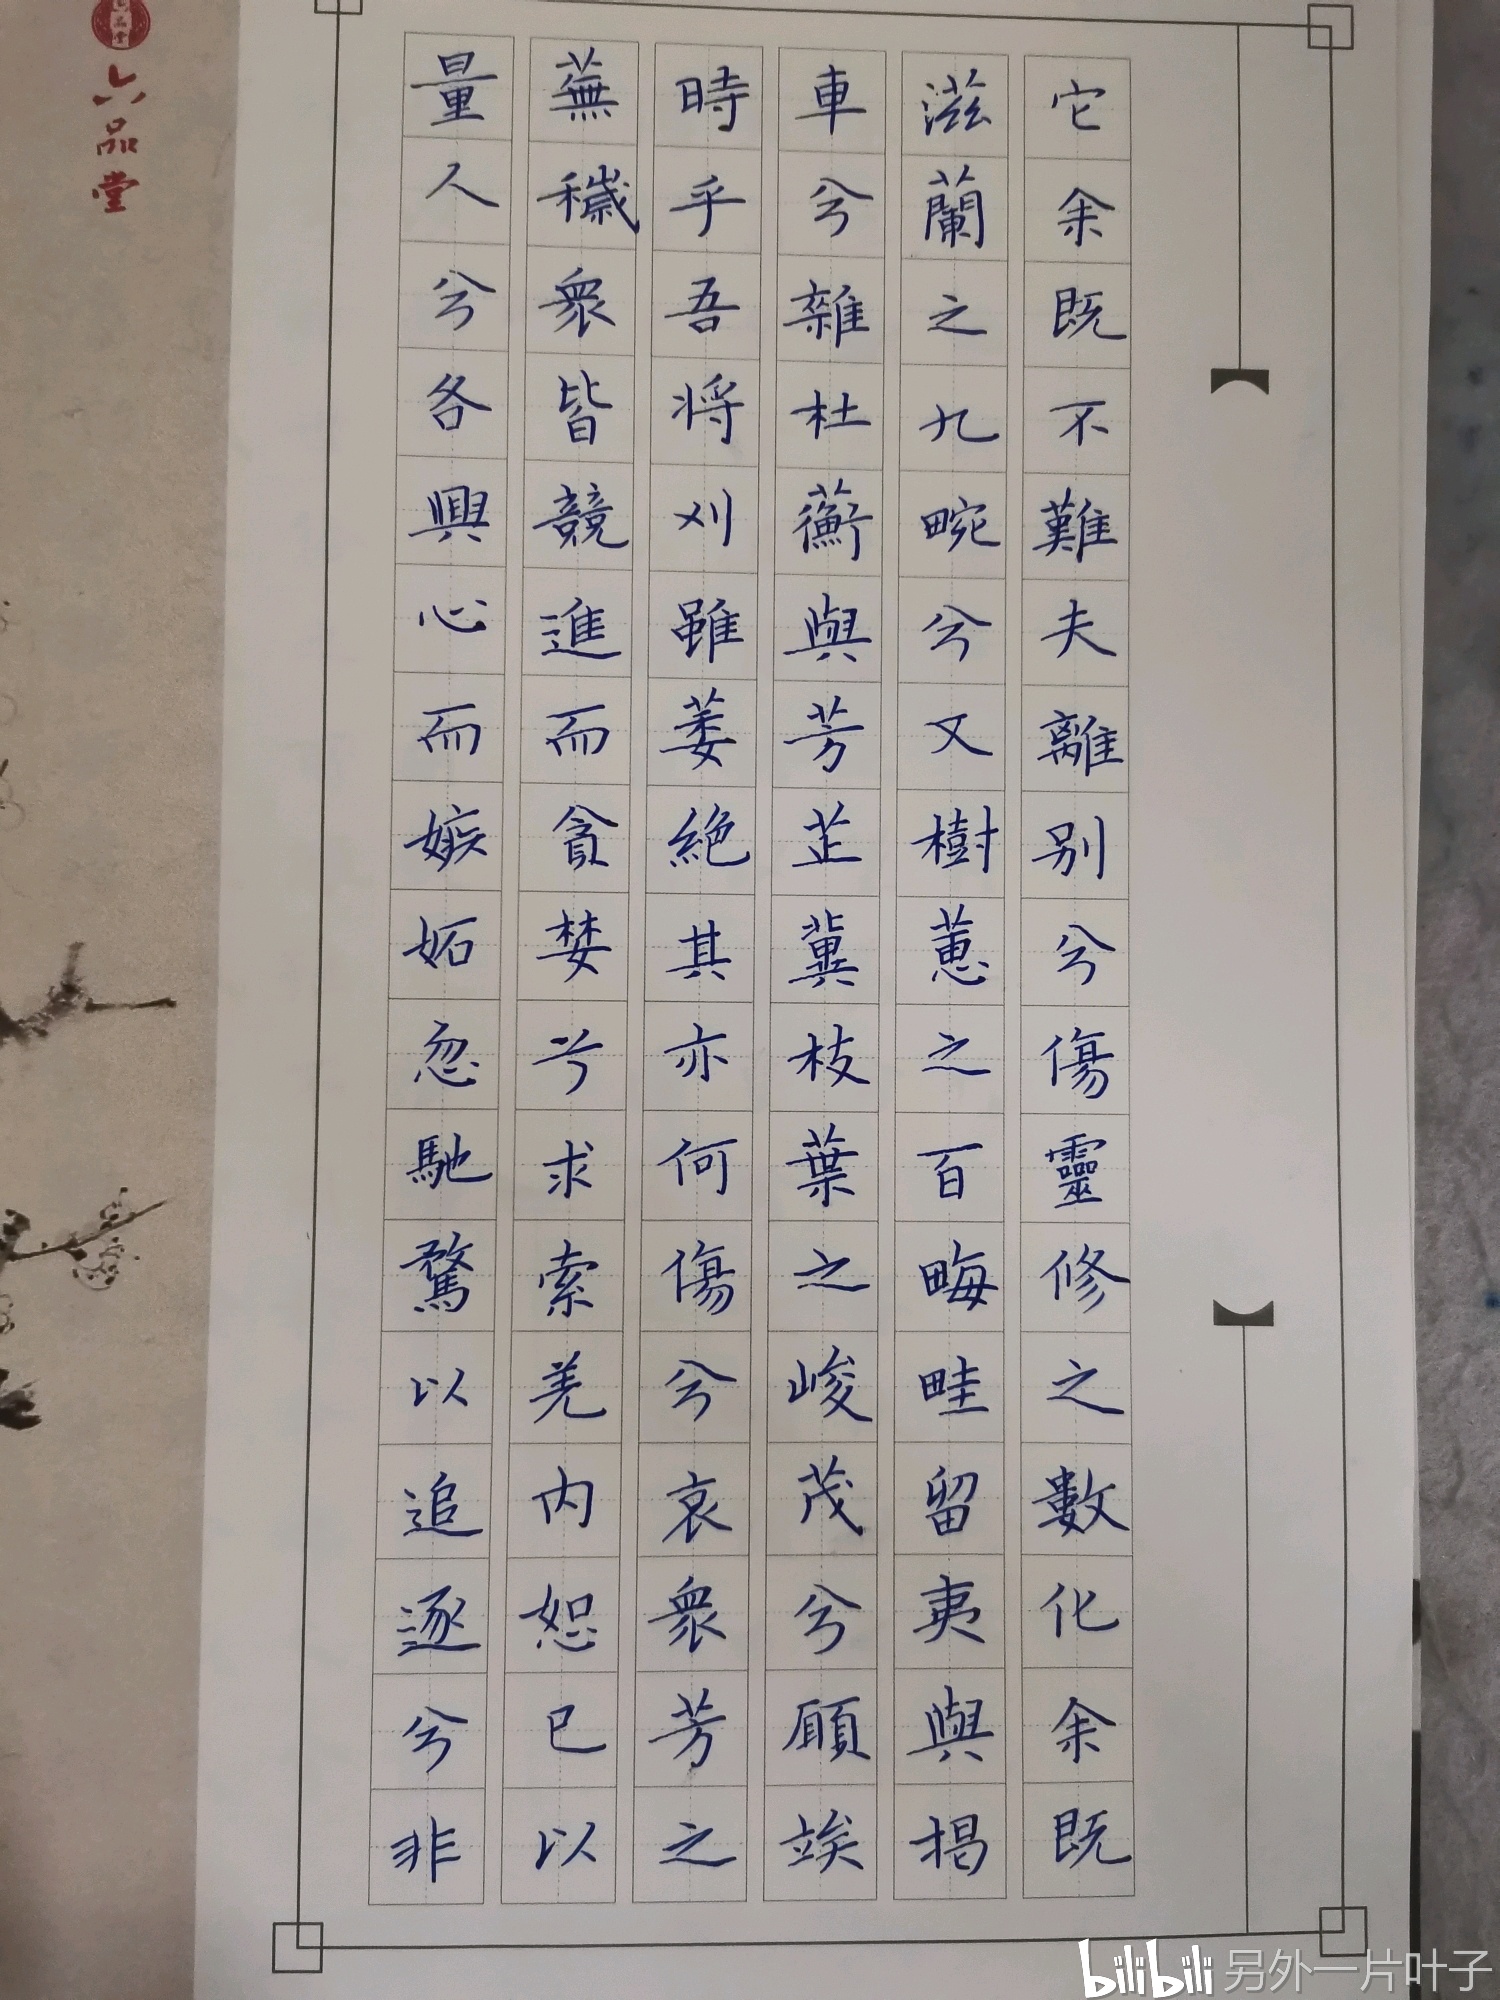 它余既不難夫離別兮傷靈修之數化余既
滋蘭之九畹兮又樹蕙之百畮畦留夷與揭
車兮雜杜蘅與芳芷冀枝葉之峻茂兮願竢
時乎吾將刈雖萎絕其亦何傷兮哀眾芳之
蕪穢眾皆競進而貪婪兮求索羌内恕已以
量人兮各興心而嫉妬忽馳騖以追逐兮非
六品堂
bilibili 另外一片叶子